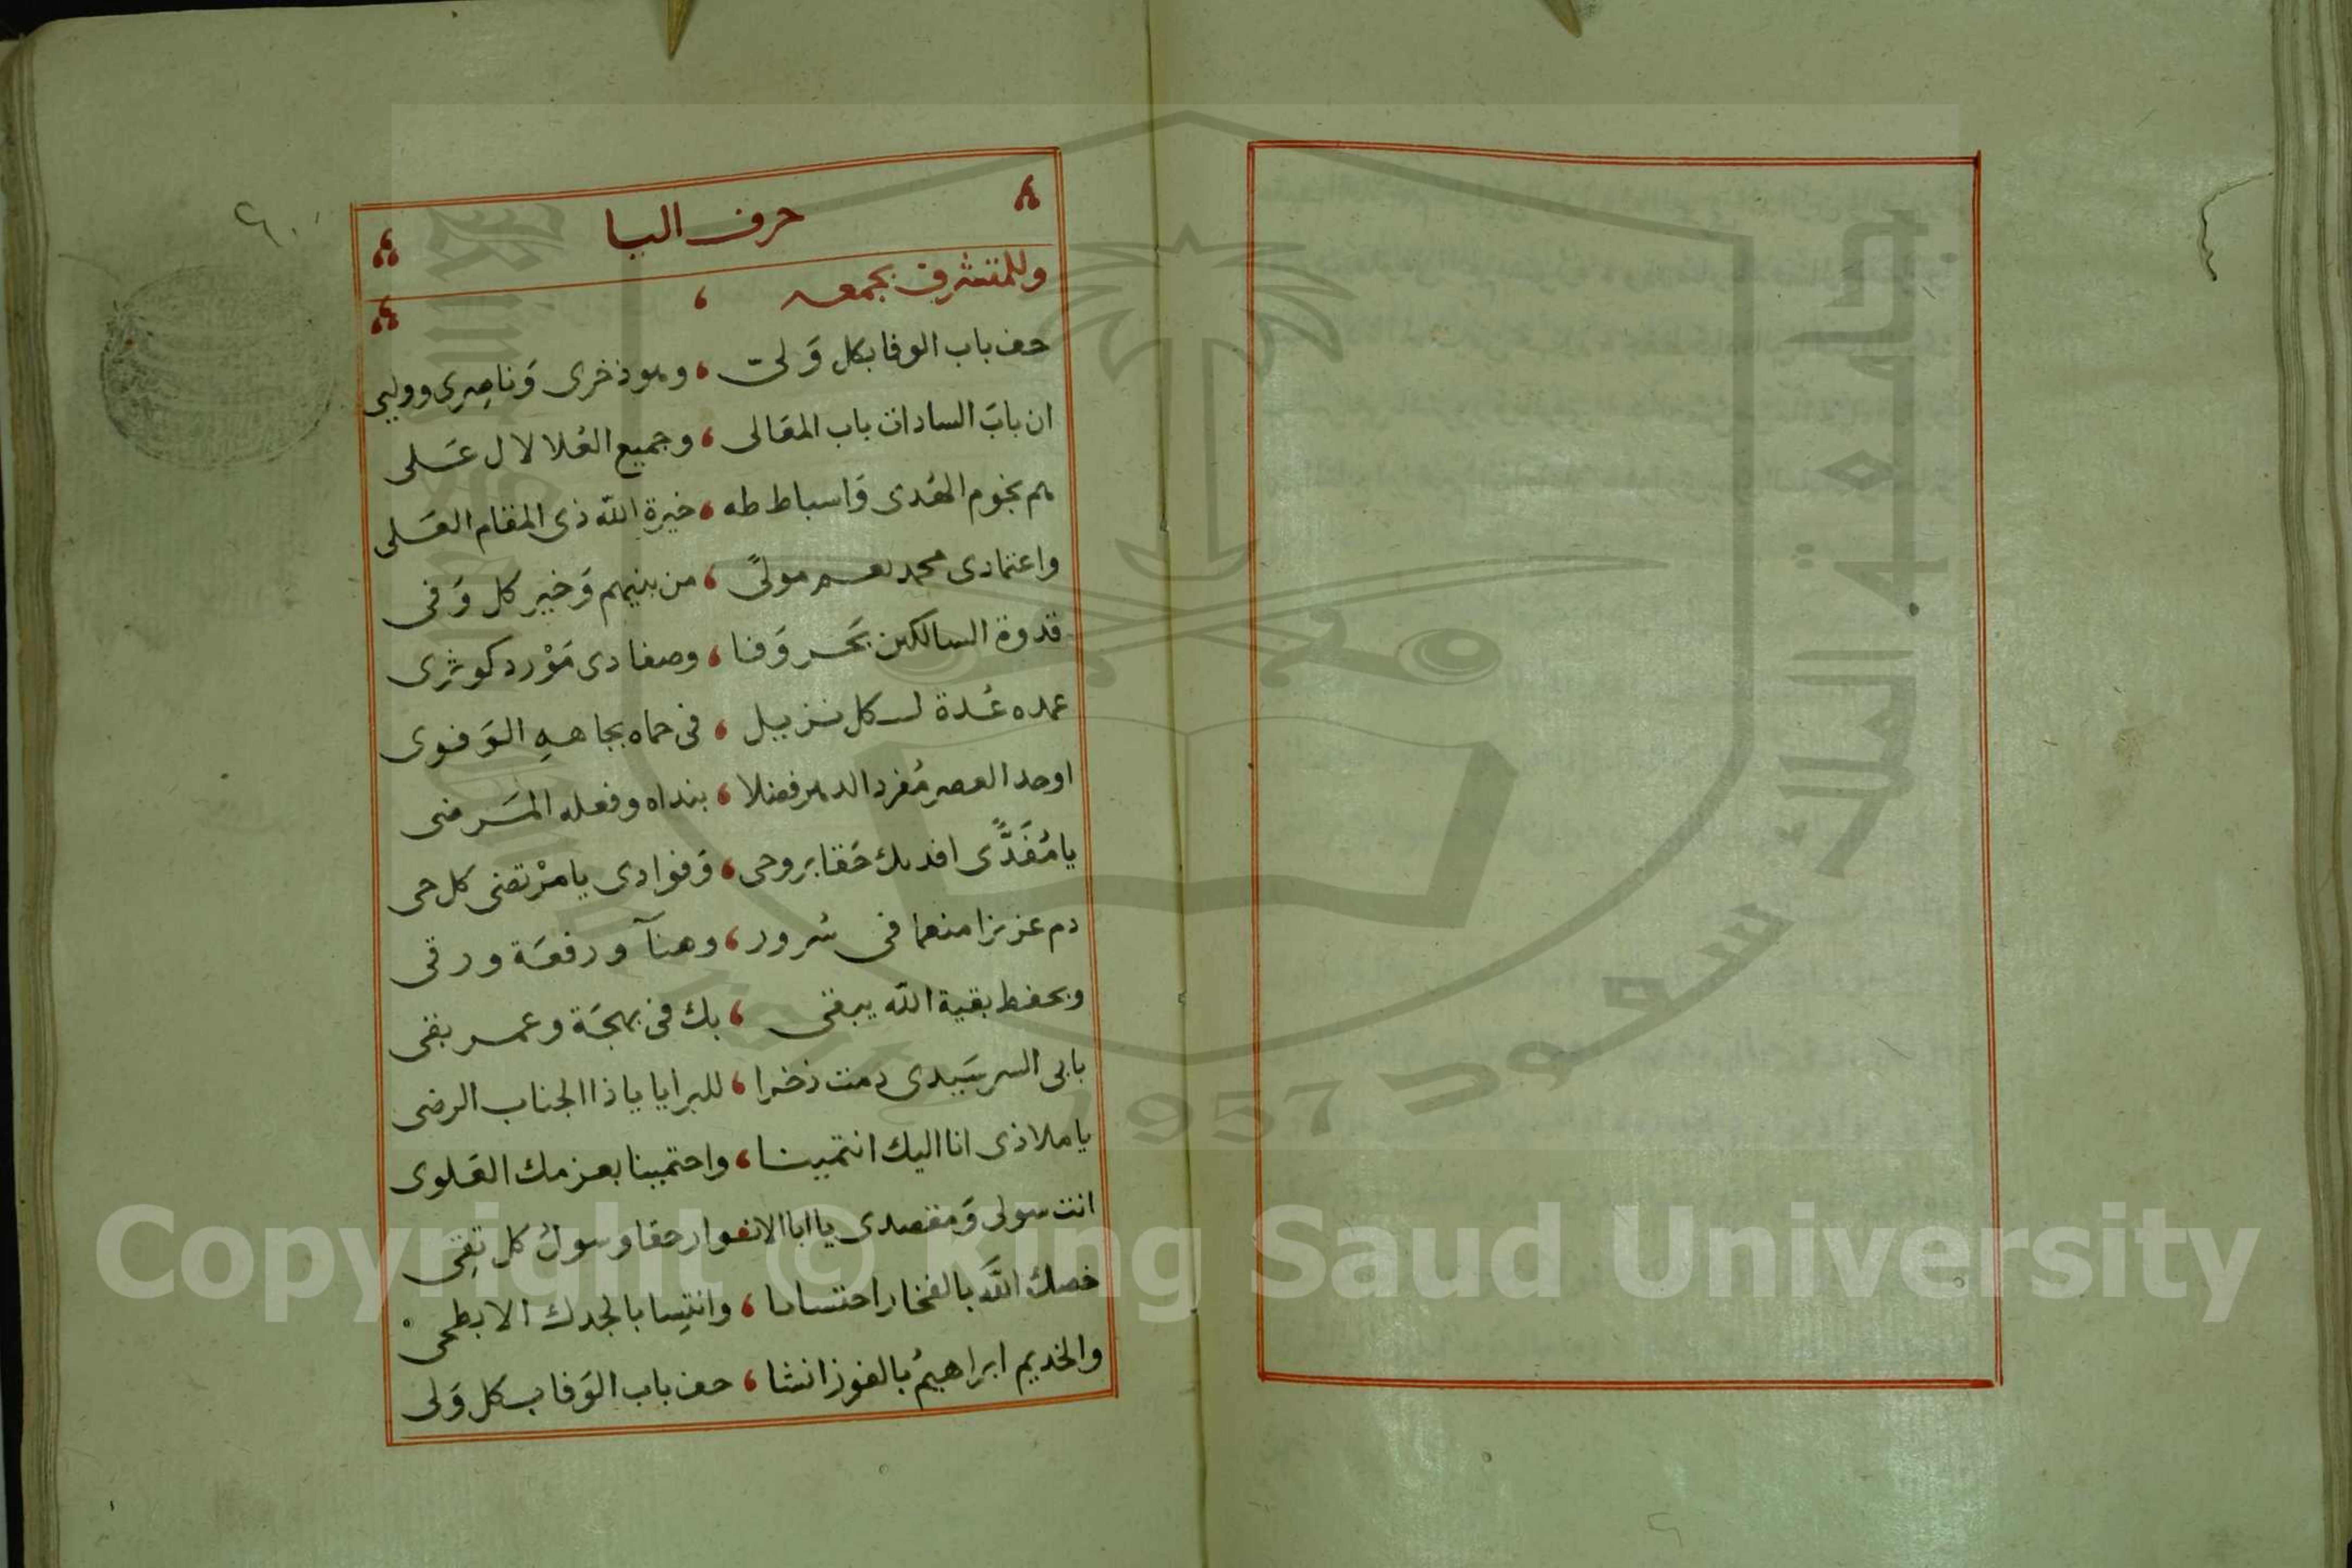 حرف اليا
وللمتشرف بجمعه
حف باب الوفا بكل وَلى ، وهو ذخرى وَناصِرى ووليى
ان بابَ السادات باب المعَالى ، وجميع العُلا لال عَلى
هم نجوم الهُدى وَاسباط طه ، خيرةِ الله ذى المقام العَلى
واعتمادى محمد نعم مولىً ، من بنيهم وَخير كل وَفى
قدوة السالكين بَحر وَفا ، وصفا دى مَوْرد كوثرى
عمده عُدة لكل نزيل ، فى حماه بجاههِ الوَفوى
اوحد العصر مُفرد الدهر فضلا ، بنداه وفعله المَرضى
يا مُفَدًّى افديك حَقا بروحى ، وَفوادى يا مرْتضى كل حى
دم عزيزا منعما فى سُرور ، وهنآ ورفعَة ورقى
وبحفظ بقية الله يبقى ، بك فى بهجَة وعمر بقى
بابى السر سَيدى دمت ذخرا ، للبرايا يا ذا الجناب الرضى
يا ملاذى انا اليك انتمينا ، واحتمينا بعزمك العَلوى
انت سولى وَمقصدى يا ابا الانوار حقا وسولُ كل تِقى
خصك اللَّه بالفخار احتسابا ، وانتِسابا لجدك الابطحى
والخديم ابراهيمُ بالفوز انشا ، حف باب الوَفا بكل وَلى
Copyright © King Saud University
1957